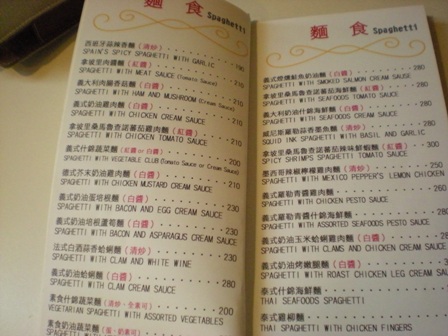 麵 食 Spaghetti
西班牙蒜辣香麵 (清炒) 190
SPAIN'S SPICY SPAGHETTI WITH GARLIC
拿坡里肉醬麵 (紅醬) 210
SPAGHETTI WITH MEAT SAUCE (Tomato Sauce)
義大利肉腸香菇麵 (白醬) 210
SPAGHETTI WITH HAM AND MUSHROOM (Cream Sauce)
義式奶油雞肉麵 (白醬) 210
SPAGHETTI WITH CHICKEN CREAM SAUCE
拿坡里桑馬魯查諾蕃茄雞肉麵 (紅醬) 210
SPAGHETTI WITH CHICKEN TOMATO SAUCE
義式什錦蔬菜麵 (紅醬 or 白醬) 200
SPAGHETTI WITH VEGETABLE CLUB (Tomato Sauce or Cream Sauce)
德式芥末奶油雞肉麵 (白醬) 210
SPAGHETTI WITH CHICKEN MUSTARD CREAM SAUCE
義式奶油蛋培根麵 (白醬) 230
SPAGHETTI WITH BACON AND EGG CREAM SAUCE
義式奶油培根蘆筍麵 (白醬) 230
SPAGHETTI WITH BACON AND ASPARAGUS CREAM SAUCE
法式白酒蒜香蛤蜊麵 (清炒) 230
SPAGHETTI WITH CLAM AND WHITE WINE
義式奶油蛤蜊麵 (白醬) 250
SPAGHETTI WITH CLAM CREAM SAUCE
素食什錦蔬菜麵 (清炒,全素可) 200
VEGETARIAN SPAGHETTI WITH ASSORTED VEGETABLES
素食奶油蔬菜麵 (蛋、奶素可)
麵 食 Spaghetti
義式煙燻鮭魚奶油麵 (白醬) 280
SPAGHETTI WITH SMOKED SALMON CREAM SAUCE
拿坡里桑馬魯查諾蕃茄海鮮麵 (紅醬) 280
SPAGHETTI WITH SEAFOODS TOMATO SAUCE
義大利奶油什錦海鮮麵 (白醬) 280
SPAGHETTI WITH SEAFOODS CREAM SAUCE
威尼斯羅勒蒜香墨魚麵 (清炒) 280
SQUID INK SPAGHETTI WITH BASIL AND GARLIC
拿坡里桑馬魯查諾蕃茄辣味鮮蝦麵 (紅醬) 300
SPICY SHRIMPS SPAGHETTI TOMATO SAUCE
墨西哥辣椒檸檬雞肉麵 (清炒) 250
SPAGHETTI WITH MEXICO PEPPER'S LEMON CHICKEN
義式羅勒青醬雞肉麵 250
SPAGHETTI WITH CHICKEN PESTO SAUCE
義式羅勒青醬什錦海鮮麵 280
SPAGHETTI WITH ASSORTED SEAFOODS PESTO SAUCE
義式奶油玉米蛤蜊雞肉麵 (白醬)
SPAGHETTI WITH CLAMS AND CHICKEN CORN CREAM SAUCE
義式奶油烤嫩雞腿麵 (白醬)
SPAGHETTI WITH ROAST CHICKEN LEG CREAM SAUCE
泰式什錦海鮮麵
THAI SEAFOODS SPAGHETTI
泰式雞柳麵
THAI SPAGHETTI WITH CHICKEN FINGERS